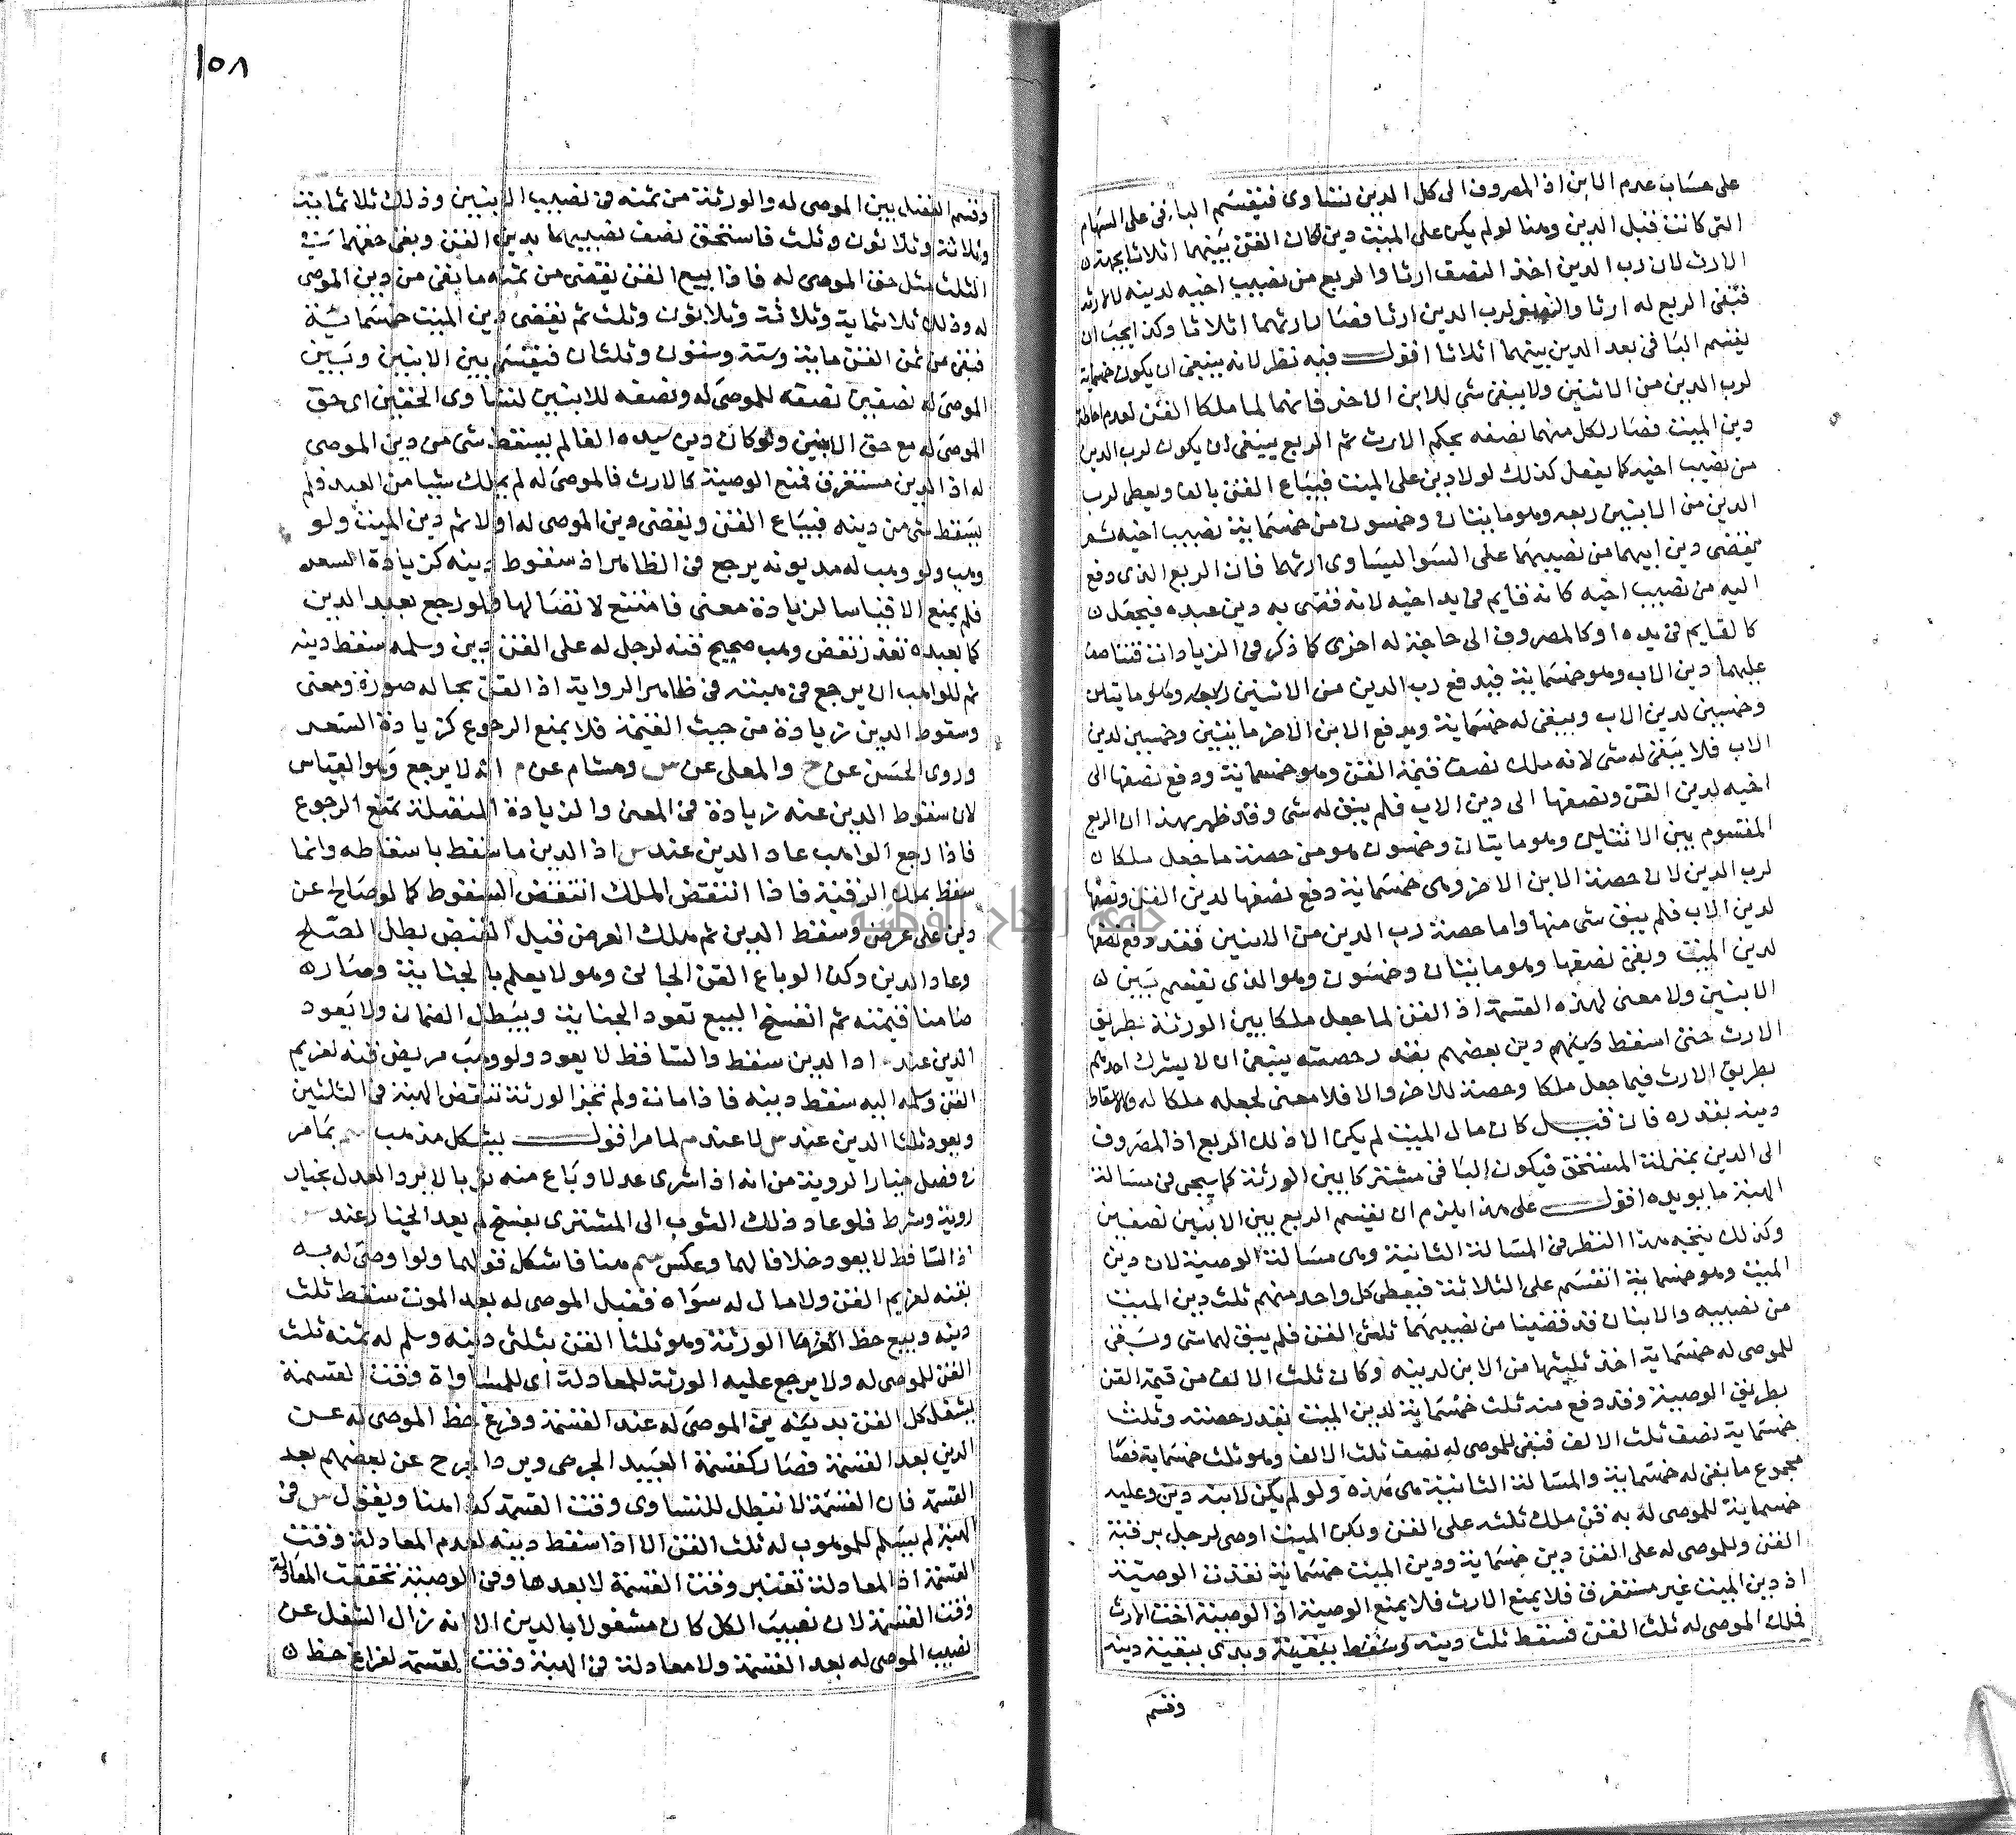 على حساب عدم الابن اذ المصروف الى كل الدين تساوى فيقسم الباقى على السهام
التى كانت قبل الدين وهنا لو لم يكن على الميت دين كان القن بينهما اثلاثا بجهة
الارث لان رب الدين اخذ النصف ارثا والربع من نصيب اخيه لدينه لا للارث
فبقى الربع له ارثا والنصف لرب الدين ارثا فصار ارثهما اثلاثا وكذا يجب ان
يقسم الباقى بعد الدين بينهما اثلاثا اقول فيه نظر لانه ينبغى ان يكون خمسماية
لرب الدين من الاثنين ولا يبقى شى للابن الاخر فانهما لما ملكا القن لعدم احاطة
دين الميت فصار لكل منهما نصفه بحكم الارث ثم الربع ينبغى ان يكون لرب الدين
من نصيب اخيه كما يفعل كذلك لو لا دين على الميت فيباع القن بالف ويعطى لرب
الدين من الابنين ربعه وهو مايتان وخمسون من خمسماية نصيب اخيه ثم
يقضى دين ابيهما من نصيبهما على السوا ليساوى ارثهما فان الربع الذى دفع
اليه من نصيب اخيه كانه قايم فى يد اخيه لانه قضى به دين عبده فيجعل
كالقايم فى يده او كالمصروف الى حاجة له اخرى كما ذكر فى الزيادات فتناصف
عليهما دين الاب وهو خمسماية فيدفع رب الدين من الاثنين ربعه وهو مايتان
وخمسين لدين الاب ويبقى له خمسماية ويدفع الابن الاخر مايتين وخمسين لدين
الاب فلا يبقى له شى لانه ملك نصف قيمة القن وهو خمسماية ودفع نصفها الى
اخيه لدين القن ونصفها الى دين الاب فلم يبق له شى وقد ظهر بهذا ان الربع
المقسوم بين الاثنين وهو مايتان وخمسون هو من حصة ما جعل ملكا
لرب الدين لان حصة الابن الاخر وهى خمسماية دفع نصفها لدين القن ونصفها
لدين الاب فلم يبق شى منها واما حصة رب الدين من الابنين فقد دفع نصفها
لدين الميت وبقى نصفها وهو مايتان وخمسون وهو الذى تقسم بين
الابنين ولا معنى لهذه القسمة اذ القن لما جعل ملكا بين الورثة بطريق
الارث حتى اسقط دينهم دين بعضهم بقدر حصته ينبغى ان لا يشرك احدهم
بطريق الارث فيما جعل ملكا وحصة للاخر والا فلا معنى لجعله ملكا له ولاسقاط
دينه بقدره فان قيل كان مال الميت لم يكن الا ذلك الربع اذ المصروف
الى الدين بمنزلة المستحق فيكون الباقى مشتركا بين الورثة كما سيجى فى مسالة
الهبة ما يويده اقول على هذا يلزم ان يقسم الربع بين الابنين نصفين
وكذلك يتجه هذا النظر فى المسالة الثانية وهى مسالة الوصية لان دين
الميت وهو خمسماية انقسم على الثلاثة فيعطى كل واحد منهم ثلث دين الميت
من نصيبه والابنان قد قضينا من نصيبهما ثلثى القن فلم يبق لهما شى وبقى
للموصى له خمسماية اخذ ثلثها من الابن لدينه وكان ثلث الالف من قيمة القن
بطريق الوصية وقد دفع منه ثلث خمسماية لدين الميت بقدر حصته وثلث
خمسماية نصف ثلث الالف فبقى للموصى له نصف ثلث الالف وهو ثلث خمسماية فصار
مجموع ما بقى له خمسماية والمسالة الثانية هى هذه ولو لم يكن لابنه دين وعليه
خمسماية للموصى له به قن ملك ثلثه على القن ولكن الميت اوصى لرجل برقبة
القن وللموصى له على القن دين خمسماية ودين الميت خمسماية نفذت الوصية
اذ دين الميت غير مستغرق فلا يمنع الارث فلا يمنع الوصية اذ الوصية اخت الارث
فملك الموصى له ثلث القن فسقط ثلث دينه وسقط ببقيته وبدى ببقية دينه
وقسم
١٥٨
وقسم الفضل بين الموصى له والورثة من ثمنه فى نصيب الابنين وذلك ثلاثماية
وثلاثة وثلاثون وثلث فاستحق نصف نصيبهما بدين القن وبقى حقهما
الثلث مثل حق الموصى له فاذا بيع القن يقضى من ثمنه ما بقى من دين الموصى
له وذلك ثلاثماية وثلاثة وثلاثون وثلث ثم يقضى دين الميت خمسماية
فبقى من ثمن القن ماية وستة وستون وثلثان فيقسم بين الابنين وبين
الموصى له نصفين نصفه للموصى له ونصفه للابنين لتساوى الحقين اى حق
الموصى له مع حق الابنين ولو كان دين سيده الفا لم يسقط شى من دين الموصى
له اذ الدين مستغرق فمنع الوصية كالارث فالموصى له لم يملك شيا من العبد فلم
يسقط شى من دينه فيباع القن ويقضى دين الموصى له اولا ثم دين الميت ولو
وهب ولو وهب له مديونه يرجع فى الظاهر اذ سقوط دينه كزيادة السعر
فلم يمنع الاقباسا لزيادة معنى فامتنع لاتصالها ولو رجع بعيد الدين
كما بعبده نفذ نقض وهب صحيح قنه لرجل له على القن دين وسلمه سقط دينه
ثم للواهب ان يرجع فى هبته فى ظاهر الرواية اذ القن بحاله صورة ومعنى
وسقوط الدين زيادة من حيث القيمة فلا يمنع الرجوع كزيادة السعر
وروى الحسن عن ح والمعلى عن س وهشام عن م انه لا يرجع وهو القياس
لان سقوط الدين عنه زيادة فى المعنى والزيادة المتصلة تمنع الرجوع
فاذا رجع الواهب عاد الدين عند س اذ الدين ما سقط باسقاطه وانما
سقط بملك الرقبة فاذا انتقض الملك انتقض السقوط كما لو صالح عن
دين على عرض وسقط الدين ثم هلك العرض قبل القبض بطل الصلح
وعاد الدين وكذا لو باع القن الجانى وهو لا يعلم بالجناية وصار
ضامنا قيمته ثم انفسخ البيع تعود الجناية ويبطل الضمان ولا يعود
الدين عند م اذا الدين سقط والساقط لا يعود ولو وهب مريض قنه لغريم
القن وسلمه اليه سقط دينه فاذا مات ولم تجز الورثة تنتقض الهبة فى الثلثين
ويعود ثلثا الدين عند س لا عند م لما مر اقول يشكل مذهب م بما مر
فى فصل خيار الروية من انه اذا اشرى عدلا وباع منه ثوبا لا يرد العدل بخيار
روية وشرط فلو عاد ذلك الثوب الى المشترى بفسخ لم يعد الخيار عند س
اذ الساقط لا يعود خلافا لهما وعكس م هنا فاشكل قولهما ولو اوصى له به
بقنه لغريم القن ولا مال له سواه فقبل الموصى له بعد الموت سقط ثلث
دينه وبيع حظ الورثة وهو ثلثا القن بثلثى دينه وسلم له ثمنه ثلث
القن للموصى له ولا يرجع عليه الورثة للمعادلة اى للمساواة وقت القسمة
بشغل كل القن بدينه من الموصى له عند القسمة وفرغ حظ الموصى له عن
الدين بعد القسمة فصار كقسمة العبيد الجرحى وبرد الجرح عن بعضهم بعد
القسمة فان القسمة لا تبطل للتساوى وقت القسمة كذا هنا ويقول س فى
الهبة لم يسلم للموهوب له ثلث القن الا اذا سقط دينه لعدم المعادلة وقت
القسمة اذ المعادلة تعتبر وقت القسمة لا بعدها وفى الوصية تحققت المعادلة
وقت القسمة لان نصيب الكل كان مشغولا بالدين الا انه زال الشغل عن
نصيب الموصى له بعد القسمة ولا معادلة فى الهبة وقت القسمة لفراغ حظ
جامعة النجاح الوطنية